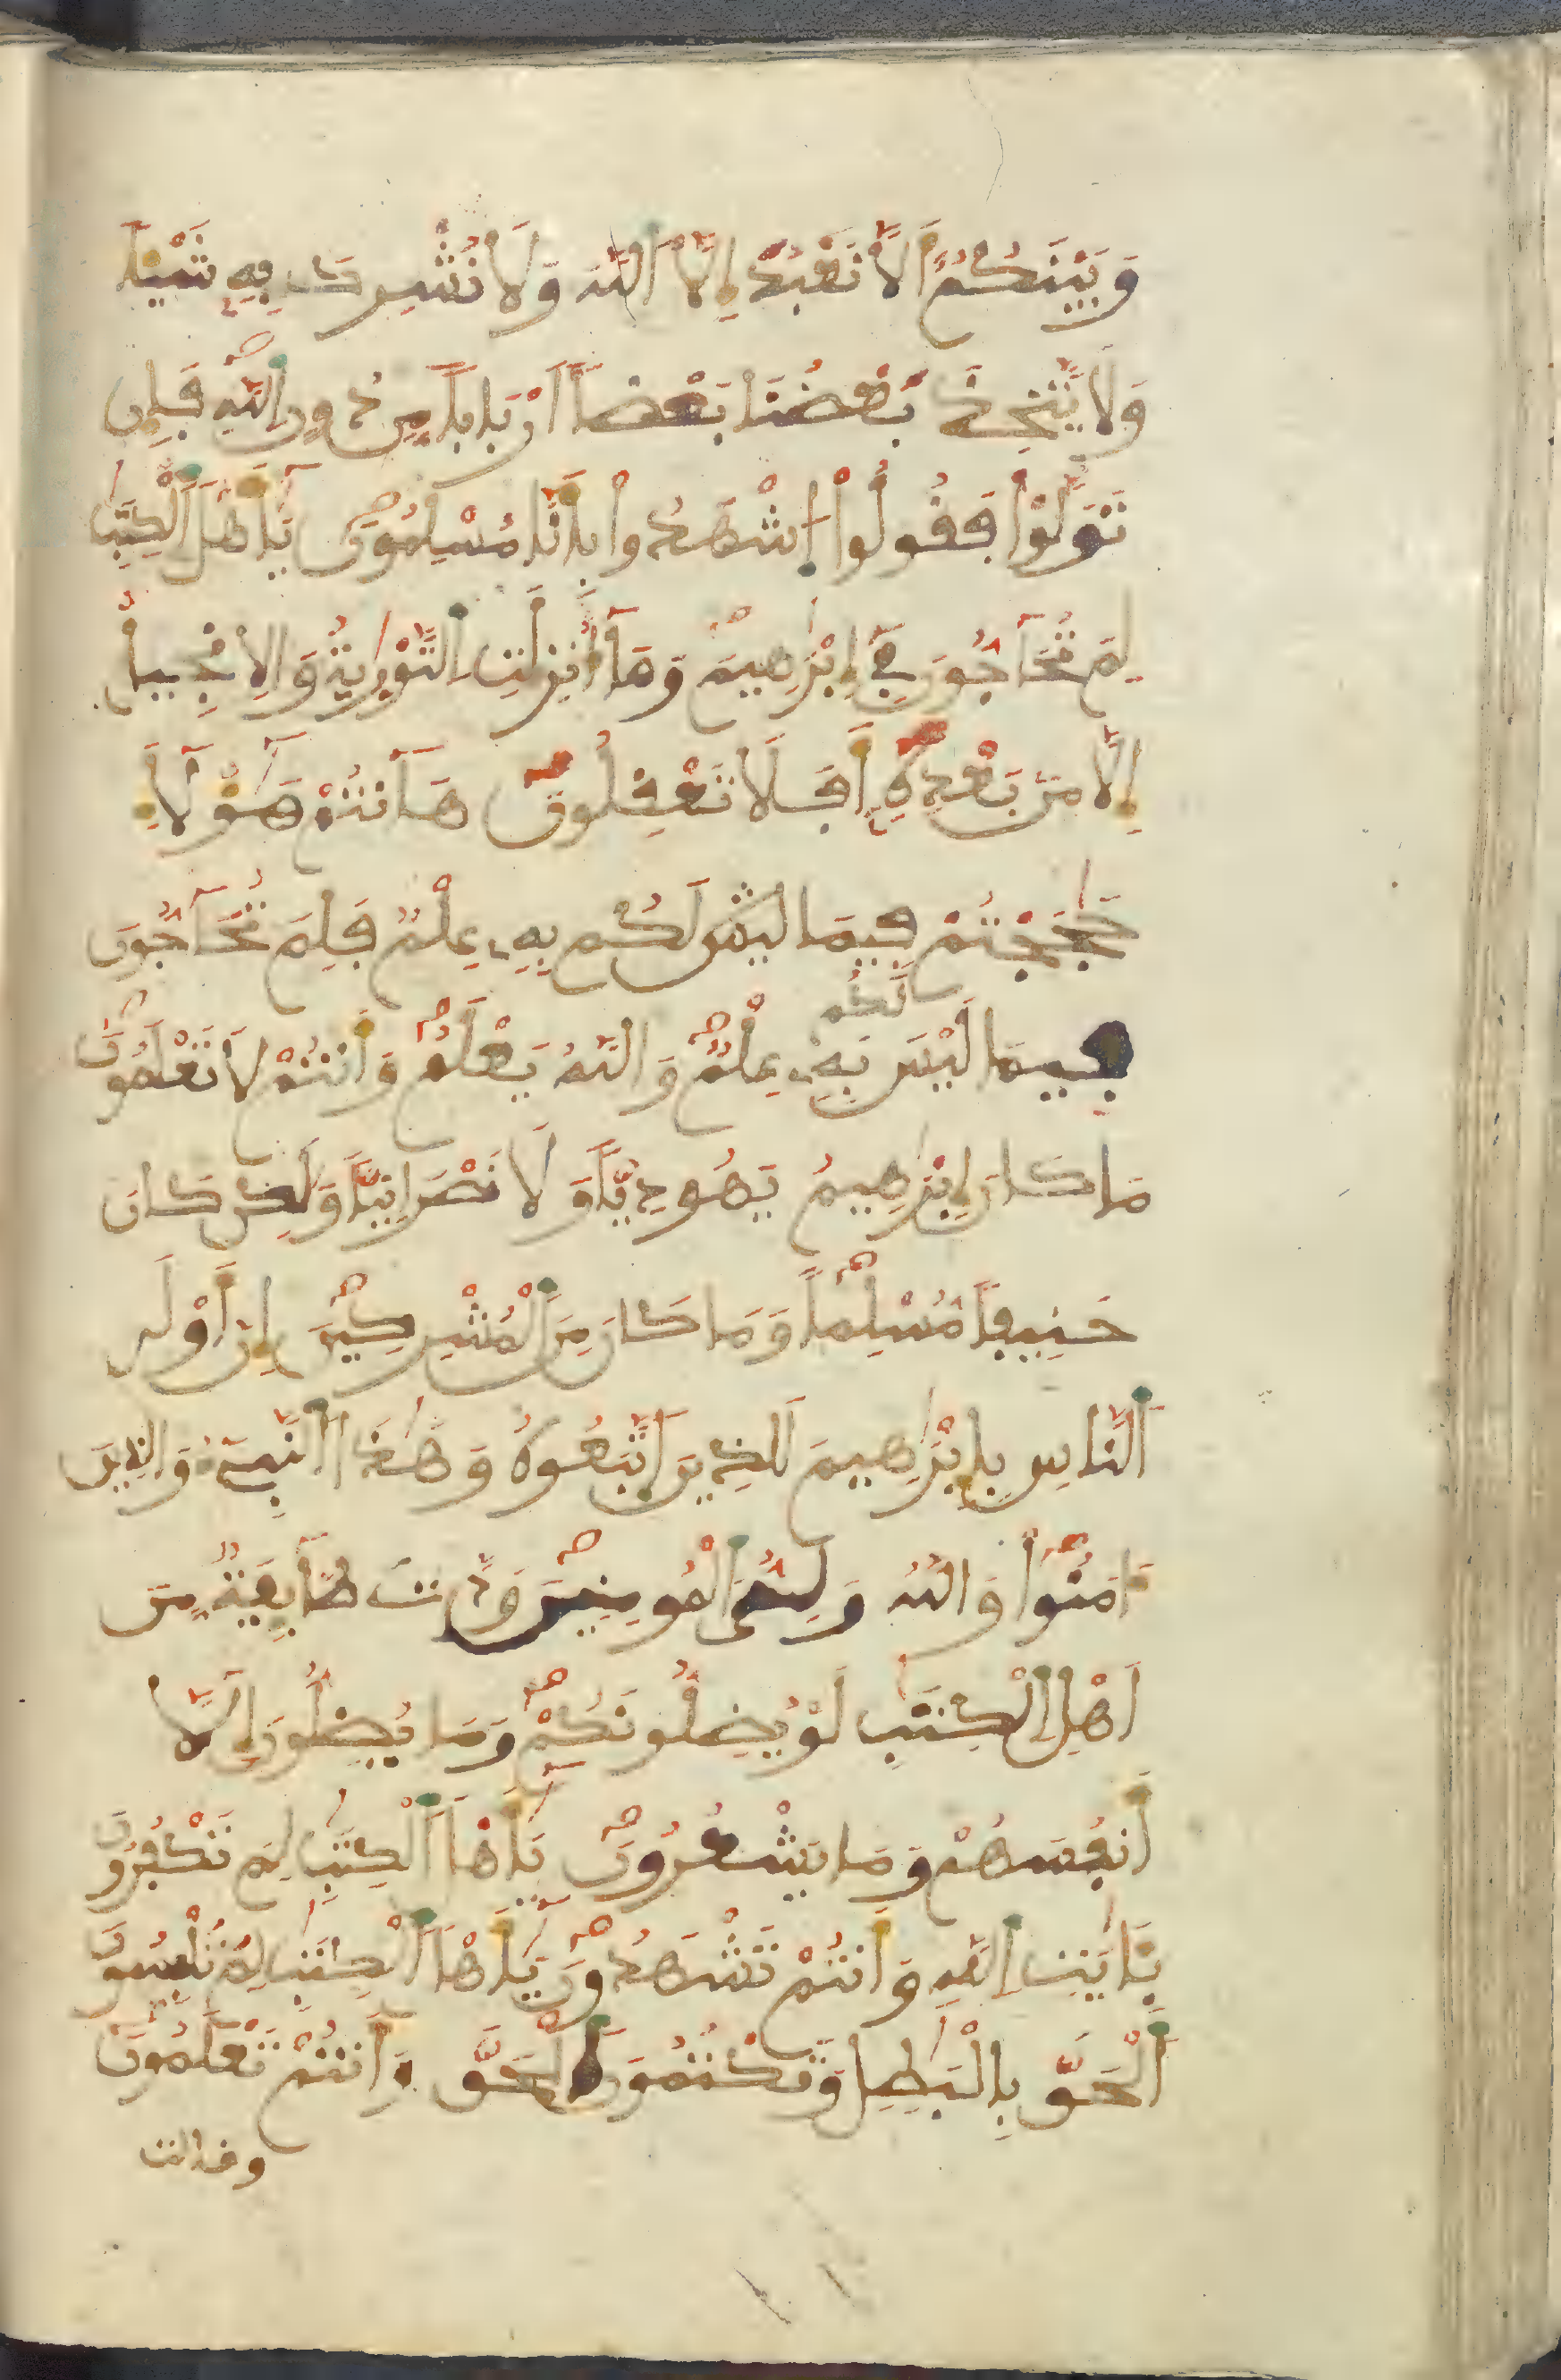 وَبَيْنَكُمُۥٓ أَلَّا نَعْبُدَ إِلَّا اَ۬للَّهَ وَلَا نُشْرِكَ بِهِۦ شَيْـٔاً
وَلَا يَتَّخِذَ بَعْضُنَا بَعْضاً اَرْبَاباً مِّن دُونِ اِ۬للَّهِ فَإِن
تَوَلَّوْا۟ فَقُولُوا۟ اُ۪شْهَدُوا۟ بِأَنَّا مُسْلِمُونَ يَٰٓأَهْلَ اَ۬لْكِتَٰبِ
لِمَ تُحَآجُّونَ فِےٓ إِبْرَٰهِيمَ وَمَآ أُنزِلَتِ اِ۬لتَّوْر۪ىٰةُ وَالِانجِيلُ
إِلَّا مِنۢ بَعْدِهِۦٓ أَفَلَا تَعْقِلُونَ هَآنتُمْ هَٰٓؤُلَآءِ
حَٰجَجْتُمْ فِيمَا لَيْسَ لَكُم بِهِۦ عِلْمٌ فَلِمَ تُحَآجُّونَ
فِيمَا لَيْسَ لَكُم بِهِۦ عِلْمٌ وَاللَّهُ يَعْلَمُ وَأَنتُمْ لَا تَعْلَمُونَ
مَا كَانَ إِبْرَٰهِيمُ يَهُودِيّاً وَلَا نَصْرَانِيّاً وَلَٰكِن كَانَ
حَنِيفاً مُّسْلِماً وَمَا كَانَ مِنَ اَ۬لْمُشْرِكِينَ إِنَّ أَوْلَى
اَ۬لنَّاسِ بِإِبْرَٰهِيمَ لَلذِينَ اَ۪تَّبَعُوهُ وَهَٰذَا اَ۬لنَّبِےٓءُ وَالذِينَ
ءَامَنُوا۟ وَاللَّهُ وَلِىُّ اُ۬لْمُومِنِينَ وَدَّت طَّآئِفَةٌ مِّنَ
اَهْلِ اِ۬لْكِتَٰبِ لَوْ يُضِلُّونَكُمْ وَمَا يُضِلُّونَ إِلَّآ
أَنفُسَهُمْ وَمَا يَشْعُرُونَ يَٰٓأَهْلَ اَ۬لْكِتَٰبِ لِمَ تَكْفُرُونَ
بِـَٔايَٰتِ اِ۬للَّهِ وَأَنتُمْ تَشْهَدُونَ يَٰٓأَهْلَ اَ۬لْكِتَٰبِ لِمَ تَلْبِسُونَ
اَ۬لْحَقَّ بِالْبَٰطِلِ وَتَكْتُمُونَ اَ۬لْحَقَّ وَأَنتُمْ تَعْلَمُونَ
وقالت